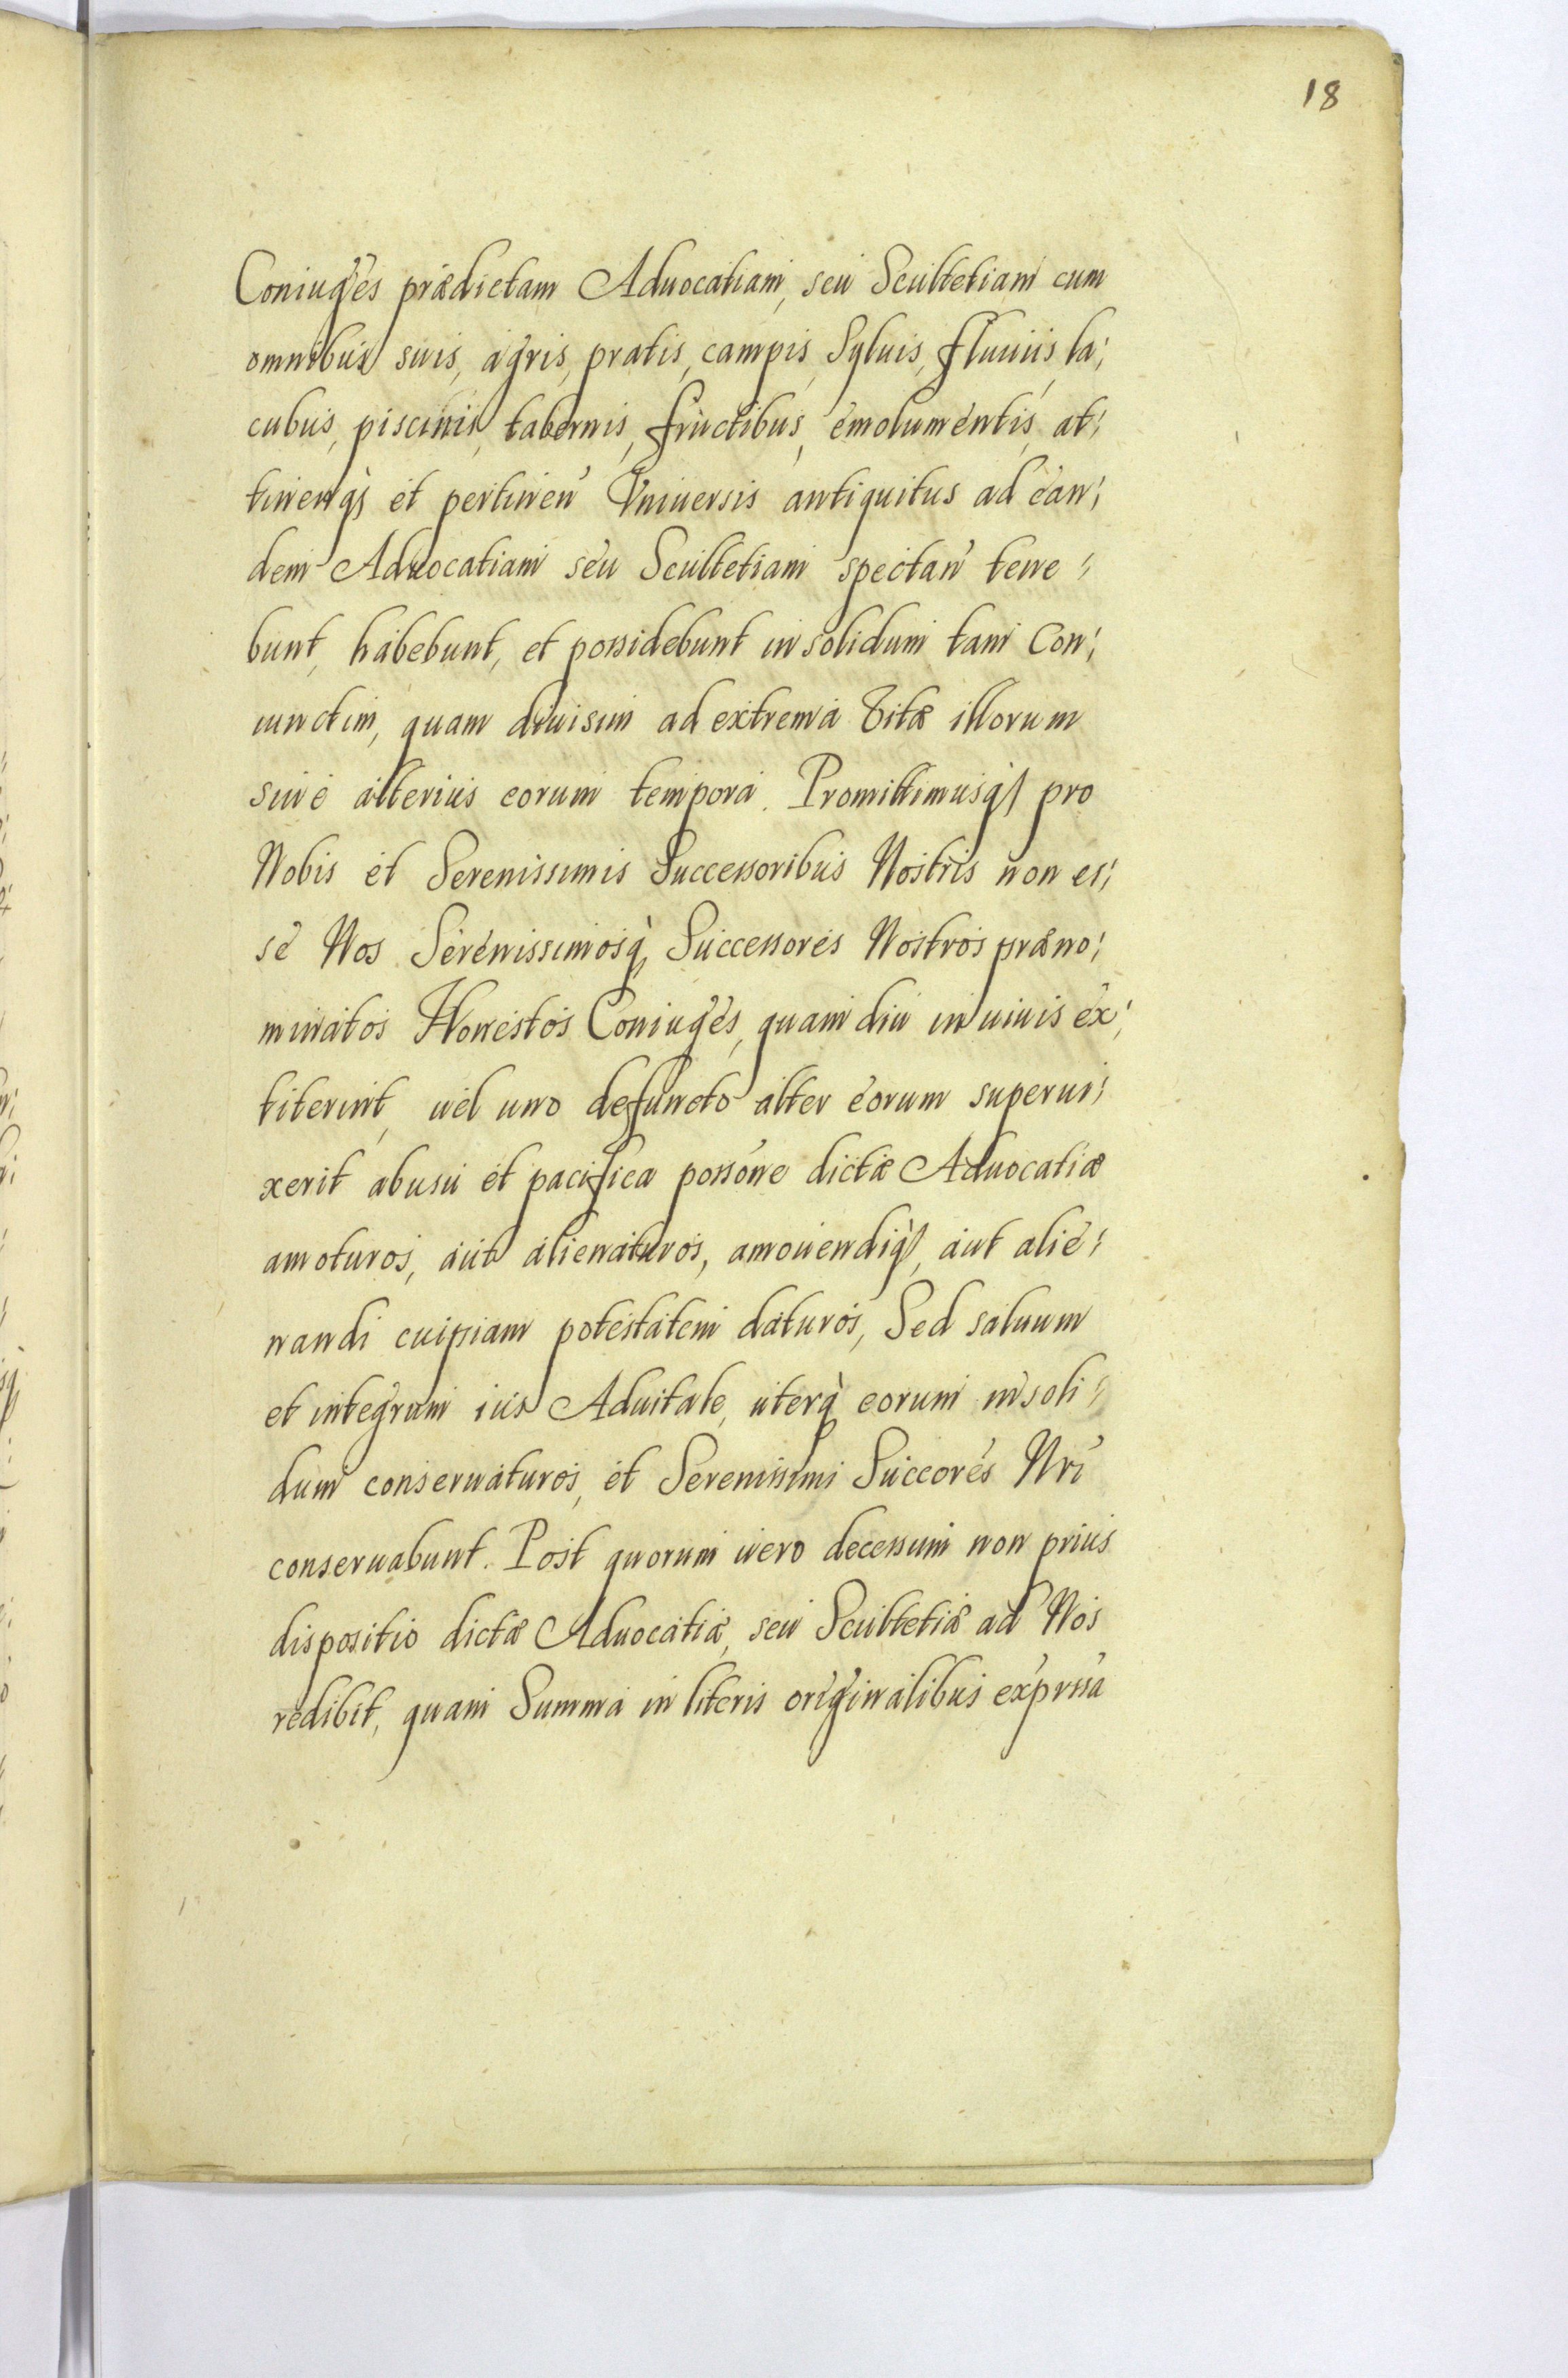 18
Coniuges prædictam Aduocatiam, seu Scultetiam cum
omnibus suis, agris, pratis, campis, Syluis, fluuiis, la;
cubus, piscinis, tabernis, fructibus, emolumentis, at;
tinenq; et pertinen Vniuersis antiquitus ad ean;
dem Aduocatiam seu Scultetiam spectan tene;
bunt, habebunt, et possidebunt in solidum tam Con;
iunctim, quam diuisim ad extrema Vitæ illorum
siue alterius eorum tempora. Promittimusq; pro
Nobis et Serenissimis Successoribus Nostris non es;
se Nos Serenissimosq; Successores Nostros præno;
minatos Honestos Coniuges, quam diu in uiuis ex;
titerint, uel uno defuncto alter eorum superui;
xerit ab usu et pacifica possone dictæ Aduocatiæ
amoturos, aut alienaturos, amouendiq;, aut alie;
nandi cuipiam potestatem daturos, Sed saluum
et integrum ius Aduitale, uterq; eorum in soli;
dum conseruaturos, et Serenissimi Succores Nri
conseruabunt. Post quorum uero decessum non prius
dispositio dictæ Aduocatiæ, seu Scultetiæ ad Nos
redibit, quam Summa in literis originalibus exprssa